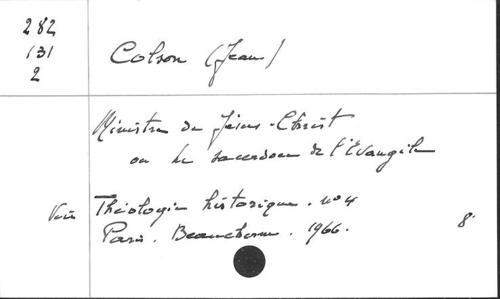 282
131
2
Colson (Jean)
Ministre de Jésus-Christ
ou le sacerdoce de l'Evangile
Voir Théologie historique. no 4
Paris. Beauchesne. 1966. 8°